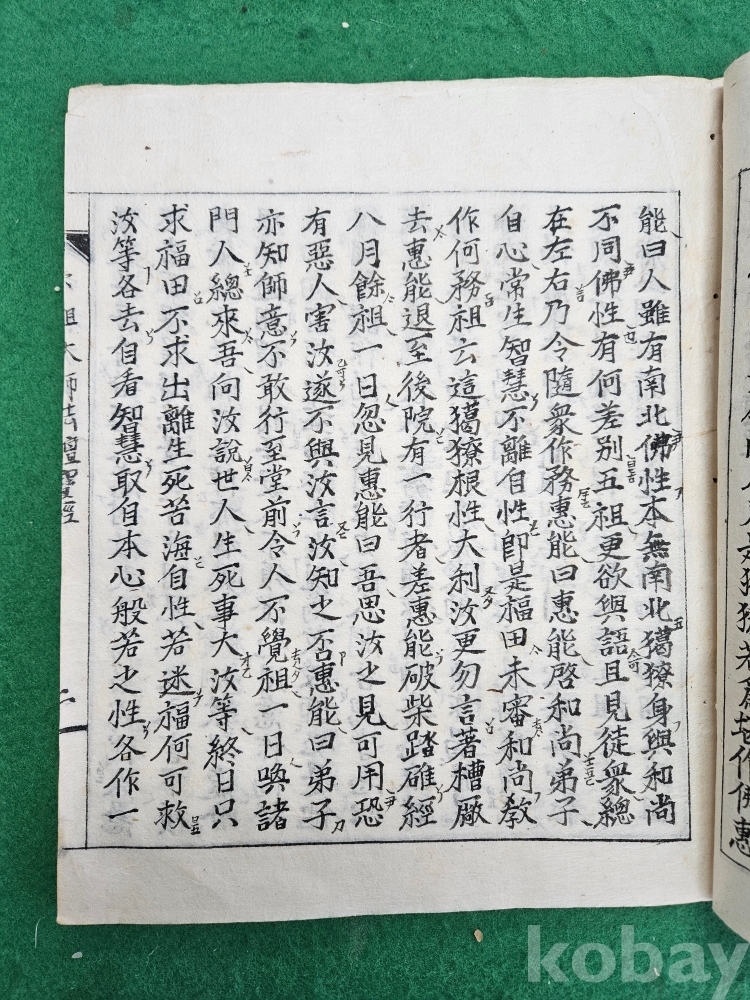 能曰人雖有南北佛性本無南北獦獠身與和尚
不同佛性有何差別五祖更欲與語且見徒衆總
在左右乃令隨衆作務惠能曰惠能啓和尚弟子
自心常生智慧不離自性卽是福田未審和尚敎
作何務祖云這獦獠根性大利汝更勿言著槽廠
去惠能退至後院有一行者差惠能破柴踏碓經
八月餘祖一日忽見惠能曰吾思汝之見可用恐
有惡人害汝遂不與汝言汝知之否惠能曰弟子
亦知師意不敢行至堂前令人不覺祖一日喚諸
門人總來吾向汝說世人生死事大汝等終日只
求福田不求出離生死苦海自性若迷福何可救
汝等各去自看智慧取自本心般若之性各作一
祖大師法壇寶經
kobay